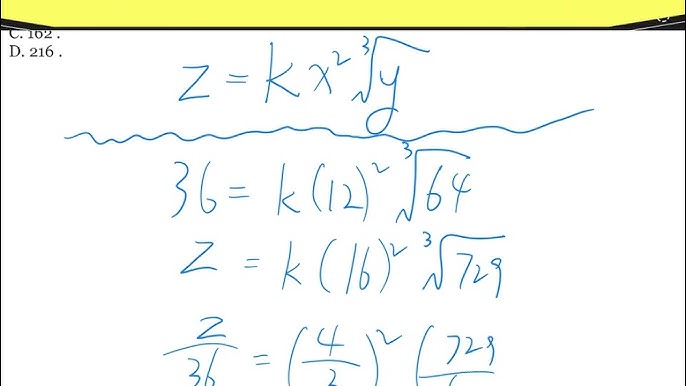 C. 162 .
D. 216 .
z = k x² ∛y
36 = k (12)² ∛64
z = k (16)² ∛729
z/36 = (4/3)² (729/